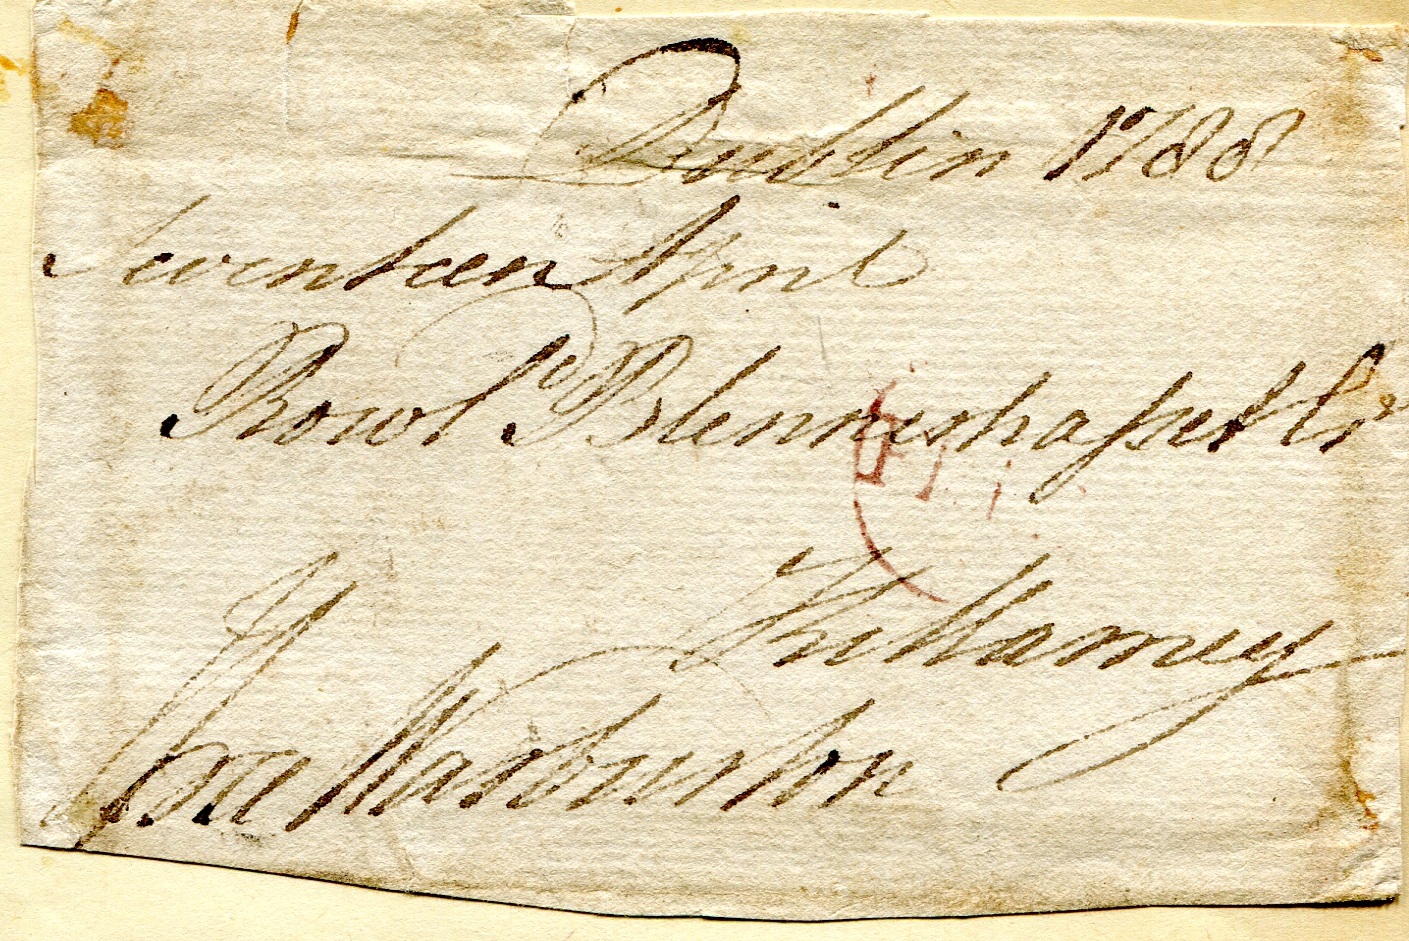 Dublin 1788
Seventeen April
Rowl.d Blennerhasset Esr
Killarney
Warburton